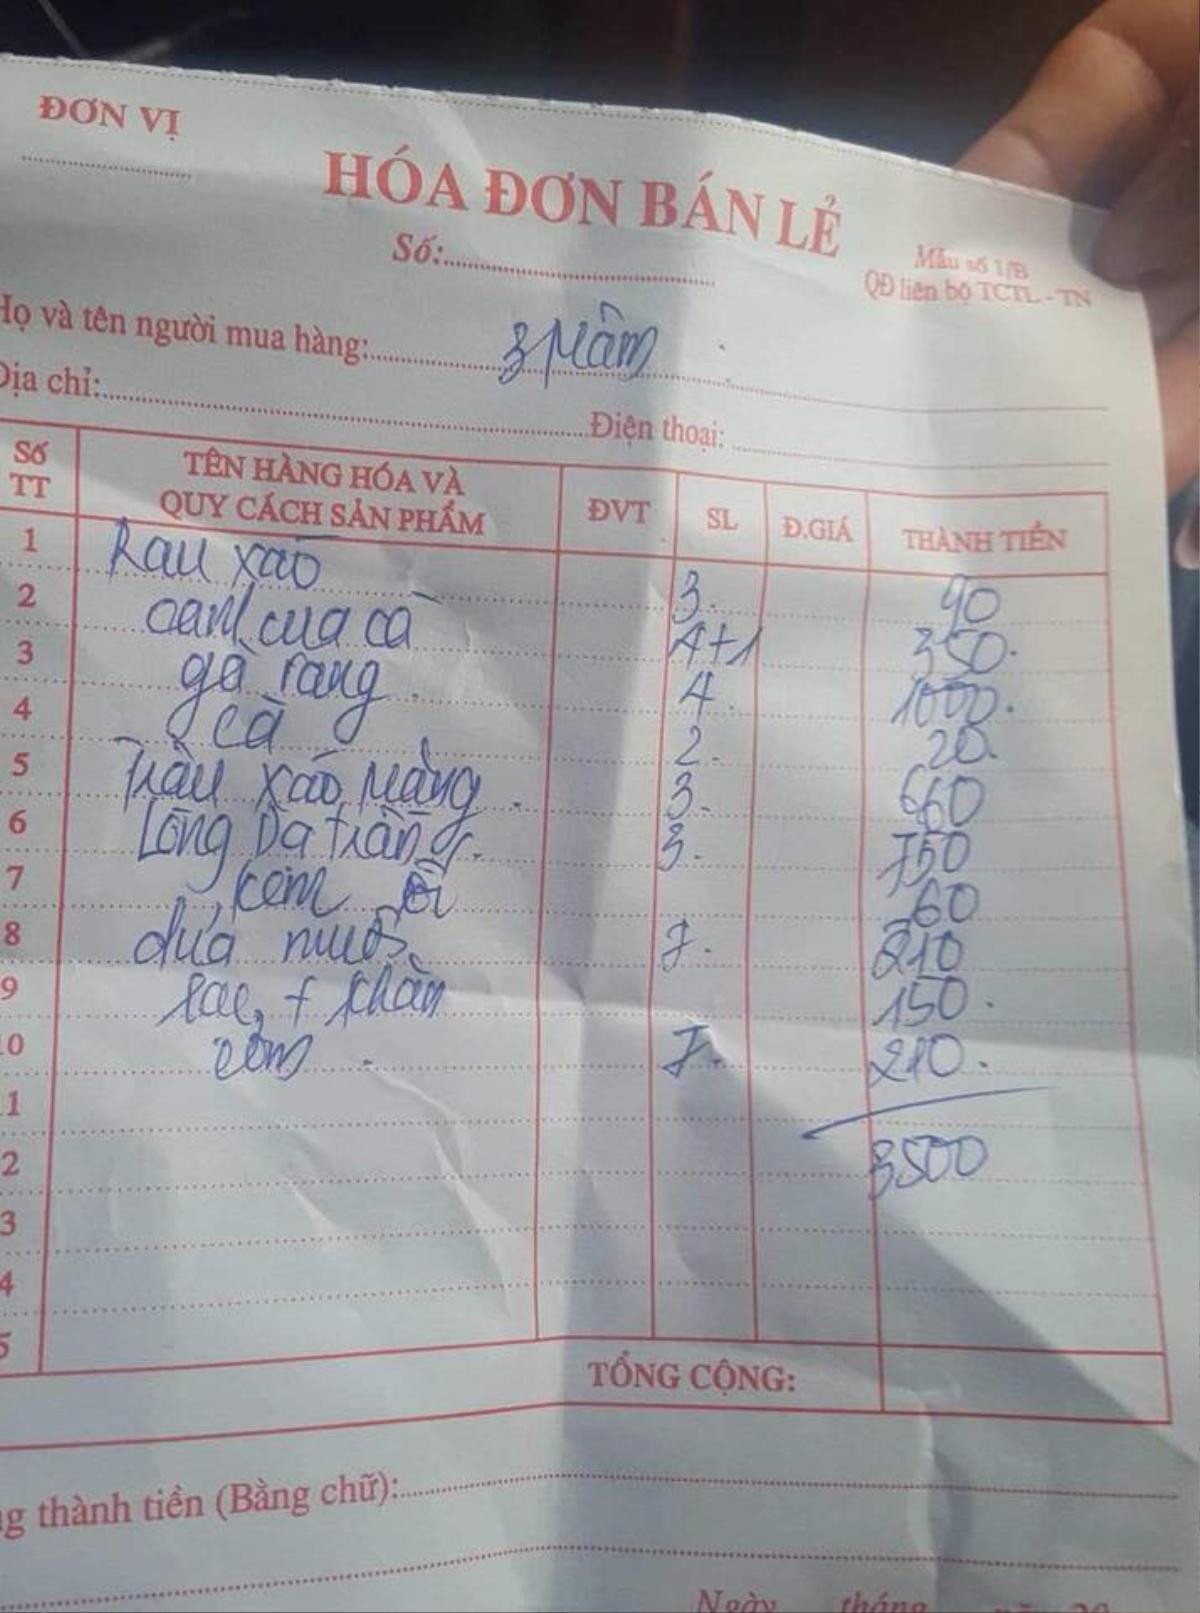 ĐƠN VỊ
HÓA ĐƠN BÁN LẺ
Số:
Mẫu số 1/B
QĐ liên bộ TCTL - TN
Họ và tên người mua hàng: 3 Mâm
Địa chỉ: Điện thoại:
Số TT TÊN HÀNG HÓA VÀ QUY CÁCH SẢN PHẨM ĐVT SL Đ.GIÁ THÀNH TIỀN
1 Rau xào 3. 90
2 canh cua cà 4+1 350.
3 gà rang 4 1000.
4 cà 2. 20.
5 Trâu xào Măng 3. 660
6 Lòng Da tràng 3. 750
7 kem 60
8 dứa muối 7. 210
9 + khăn 150.
10 cơm 7. 210.
3500
TỔNG CỘNG:
thành tiền (Bằng chữ):
Ngày tháng